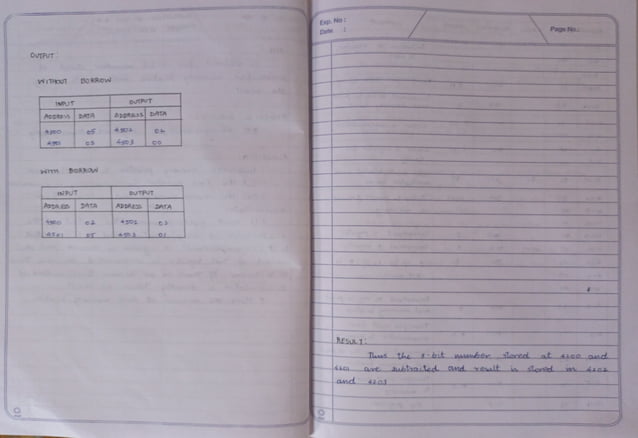 OUTPUT:
WITHOUT BORROW
INPUT OUTPUT
ADDRESS DATA ADDRESS DATA
4500 05 4502 02
4501 03 4503 00
WITH BORROW
INPUT OUTPUT
ADDRESS DATA ADDRESS DATA
4500 02 4502 03
4501 05 4503 01
Exp. No :
Date :
Page No.:
RESULT:
Thus the 8-bit number stored at 4200 and
4201 are subtracted and result is stored in 4202
and 4203